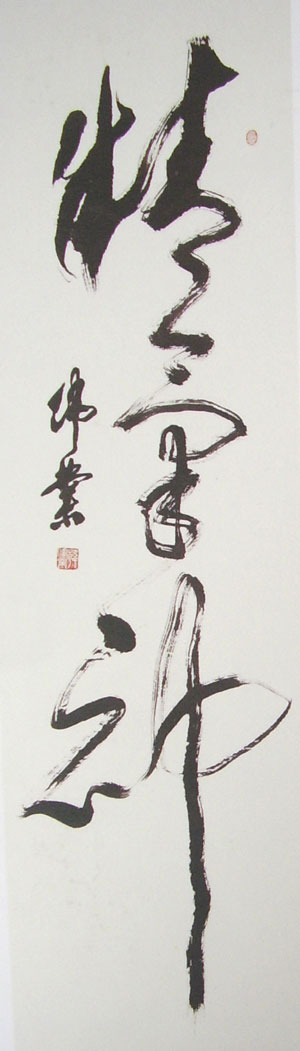 精氣神
偉業